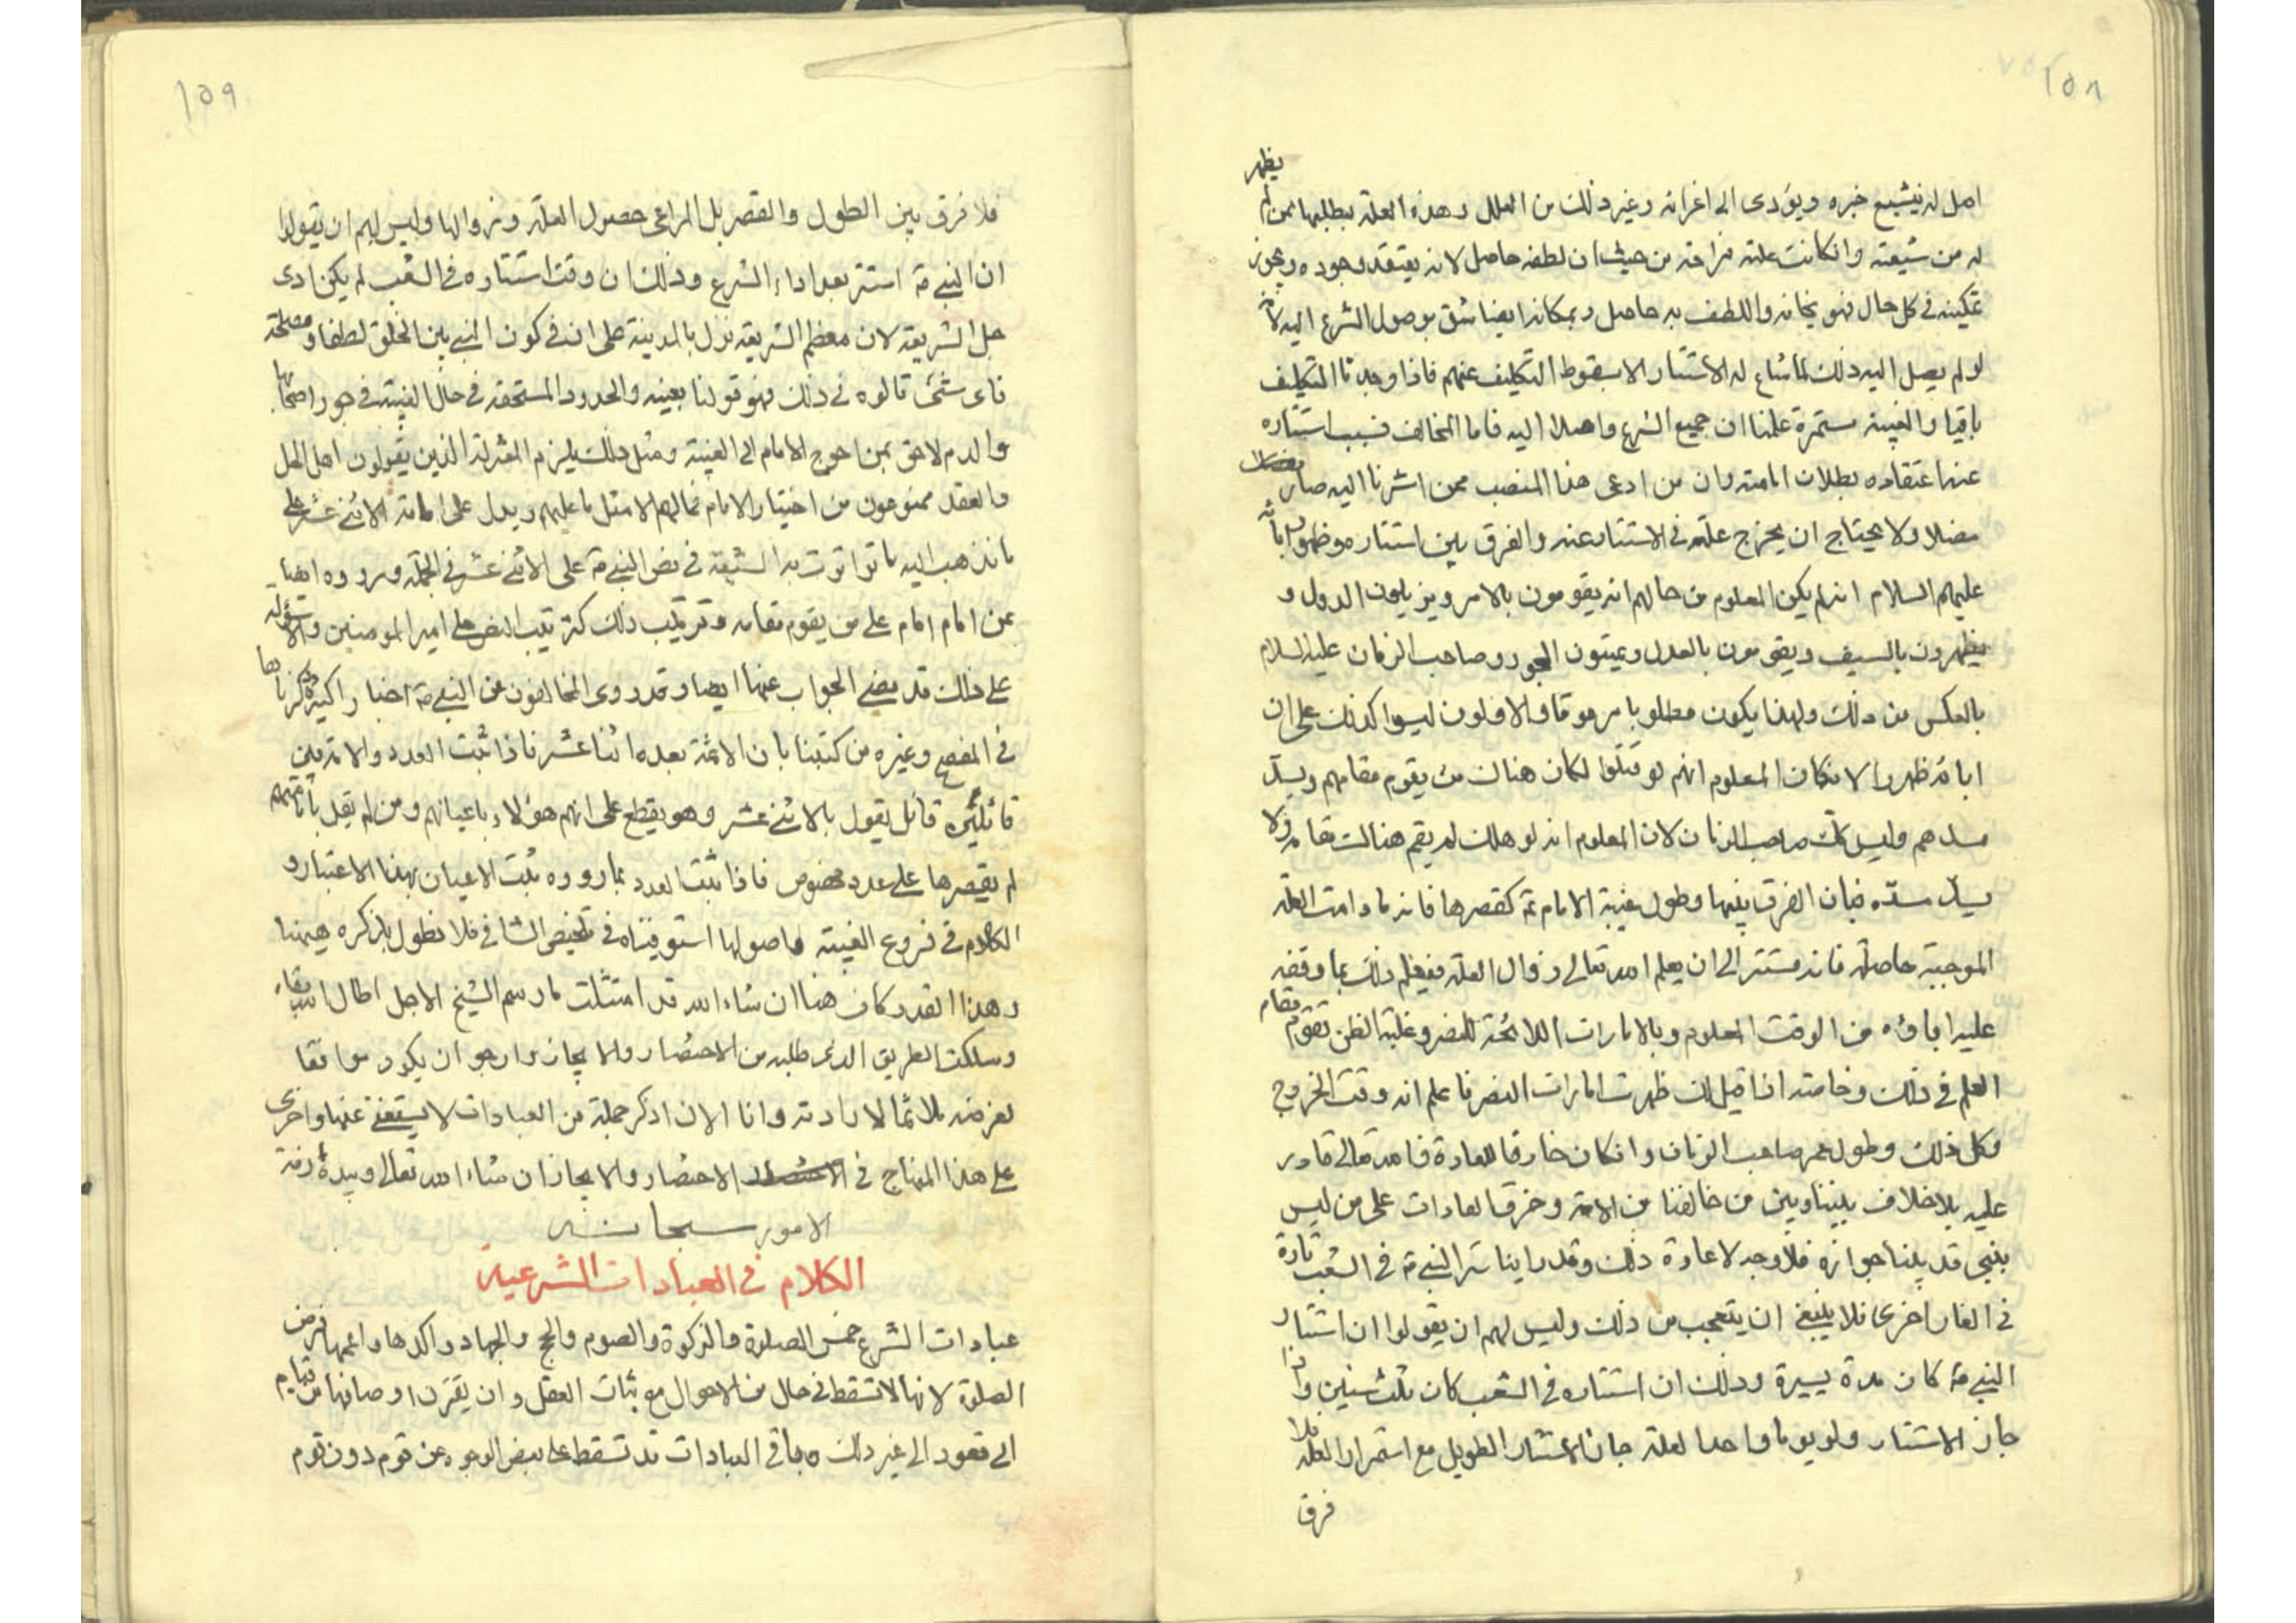 ١٥٨
اهل له فيشيع خبره ويؤدى الى اغرائه وغير ذلك من العلل وهذه العلة يطلبها من لم يظهر
له من شيعته وان كانت علته مزاحة من حيث ان لطفه حاصل لانه يعتقد وجوده ويجوز
تمكينه فى كل حال فهو يخافه واللطف به حاصل وبمكانه ايضا يثق بوصول الشرع اليه لانه
لو لم يصل اليه ذلك لما شاع له الاستتار الا بسقوط التكليف عنهم فاذا وجدنا التكليف
باقيا والغيبة مستمرة علمنا ان جميع الشرع واصلا اليه فاما المخالف فسبب استتاره
عنه اعتقاده بطلان امامته وان من ادعى هذا المنصب ممن اشرنا اليه ضال
مضلا ولا يحتاج ان يخرج علة فى الاستتار عنه والفرق بين استتاره وظهور ابائه
عليهم السلام انه لم يكن المعلوم من حالهم انه يقومون بالامر ويزيلون الدول و
يظهرون بالسيف ويقومون بالعدل ويميتون الجور وصاحب الزمان عليه السلام
بالعكس من ذلك ولهذا يكون مطلوبا مرموقا والاولون ليسوا كذلك على ان
ابائه ظهروا لانه كان المعلوم انهم لو قتلوا لكان هناك من يقوم مقامهم ويسد
مسدهم وليس كك صاحب الزمان لان المعلوم انه لو هلك لم يقم هناك مقامه ولا
يسد مسده فبان الفرق بينهما وطول غيبة الامام ع كقصرها فانه ما دامت العلة
الموجبة حاصلة فانه مستتر الى ان يعلم الله تعالى زوال العلة فيعلم ذلك بما وقفه
عليه اباؤه من الوقت المعلوم وبالامارات اللائحة للنصر وغلبة الظن تقوم مقام
العلم فى ذلك وخاصة اذا قيل لك ظهرت امارات النصر فاعلم انه وقت الخروج
وكل ذلك وطول عمر صاحب الزمان وان كان خارقا للعادة فالله تعالى قادر
عليه بلا خلاف بيننا وبين من خالفنا من الامة وخرق العادات على من ليس
بنبى قد بينا جوازه فلا وجه لاعادة ذلك وقد راينا ستر النبى ص فى الشعب تارة
فى الغار اخرى فلا ينبغى ان يتعجب من ذلك وليس لهم ان يقولوا ان استتار
النبى ص كان مدة يسيرة وذلك ان استتاره فى الشعب كان ثلث سنين واذا
جاز الاستتار ولو يوما واحدا لعلة جاز الاستتار الطويل مع استمرار العلة فلا
فرق
١٥٩
فلا فرق بين الطول والقصر بل المراعى حصول العلة وزوالها وليس لهم ان يقولوا
ان النبى ص استتر بعد اداء الشرع وذلك ان وقت استتاره فى الشعب لم يكن ادى
جل الشريعة لان معظم الشريعة نزل بالمدينة على ان فى كون النبى بين الخلق لطفا ومصلحة
فاى شئ قالوه فى ذلك فهو قولنا بعينه والحدود المستحقة فى حال الغيبة فى جور اصحابها
والذم لاحق بمن احوج الامام الى الغيبة ومثل ذلك يلزم المعتزلة الذين يقولون اهل الحل
والعقد ممنوعون من اختيار الامام فما لهم الا مثل ما عليهم ويدل على امامة الاثنى عشر على
ما نذهب اليه ما تواترت به الشيعة فى نص النبى ص على الاثنى عشر فى الجملة ورووه ايضا
عن امام امام على من يقوم مقامه وترتيب ذلك كترتيب النص على امير المؤمنين والاسئولة
على ذلك قد مضى الجواب عنها ايضا وقد روى المخالفون عن النبى ص اخبارا كثيرة ذكرناها
فى المفصح وغيره من كتبنا بان الائمة بعده اثنا عشر فاذا ثبت العدد والامة بين
قائلين قائل يقول بالاثنى عشر وهو يقطع على انهم هؤلاء باعيانهم ومن لم يقل بامامتهم
لم يقصرها على عدد مخصوص فاذا ثبت العدد بما رووه ثبت الاعيان بهذا الاعتبار و
الكلام فى فروع الغيبة واصولها استوفيناه فى تلخيص الشافى فلا نطول بذكره هيهنا
وهذا القدر كاف هنا ان شاء الله قد امتثلت ما رسم الشيخ الاجل اطال الله بقاء
وسلكت الطريق الذى طلبه من الاختصار والايجاز وارجو ان يكون موافقا
لغرضه ملائما لارادته وانا الان اذكر جملة من العبادات لا يستغنى عنها واجرى
على هذا المنهاج فى الاختصار والايجاز ان شاء الله تعالى وبيده ازمة
الامور سبحانه
الكلام فى العبادات الشرعية
عبادات الشرع خمس الصلوة والزكوة والصوم والحج والجهاد واكدها واعمها فرض
الصلوة لانها لا تسقط فى حال من الاحوال مع ثبات العقل وان يقترن اوصافها من قيام
الى قعود الى غير ذلك وباقى العبادات قد تسقط على بعض الوجوه عن قوم دون قوم